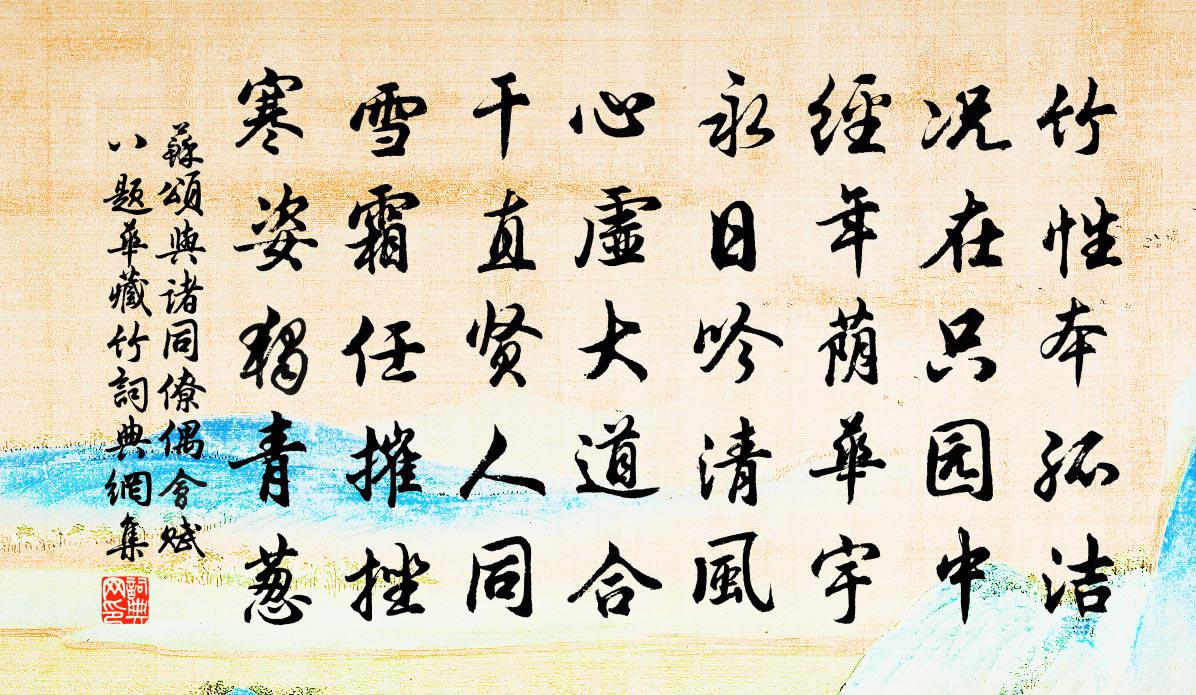 竹性本孤洁
况在只园中
經年荫華宇
永日吟清風
心虚大道合
干直贤人同
雪霜任摧挫
寒姿独青葱
蘇頌與诸同僚偶會赋
八题華藏竹詞典網集
詞典网印